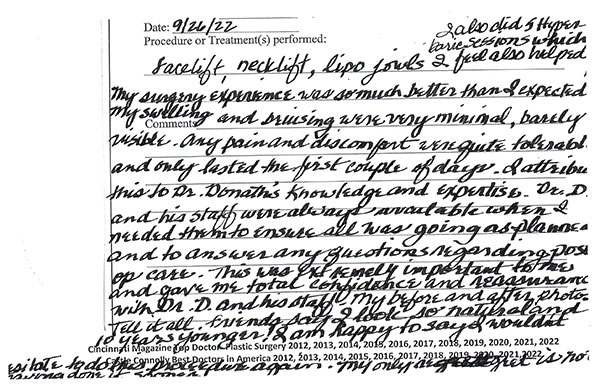 Date: 9/26/22
Procedure or Treatment(s) performed:
I also did 5 Hyper
baric sessions which
I feel also helped
Facelift, necklift, lipo jowls
My surgery experience was so much better than I expected
My swelling and bruising were very minimal, barely
Comments
visible. Any pain and discomfort were quite tolerabl
and only lasted the first couple of days. I attribu
this to Dr. Donath's knowledge and expertise. Dr. D.
and his staff were always available when I
needed them to ensure all was going as planned
and to answer any questions regarding post
op care. This was extremely important to me
and gave me total confidence and reassuranc
with Dr. D. and his staff. My before and after photo
tell it all. Friends say I look so natural and
10 years younger! I am happy to say I wouldnt
Cincinnati Magazine Top Doctor Plastic Surgery 2012, 2013, 2014, 2015, 2016, 2017, 2018, 2019, 2020, 2021, 2022
Castle Connolly Best Doctors in America 2012, 2013, 2014, 2015, 2016, 2017, 2018, 2019, 2020, 2021, 2022
esitate to do this procedure again. My only regret is no
having done it sooner!